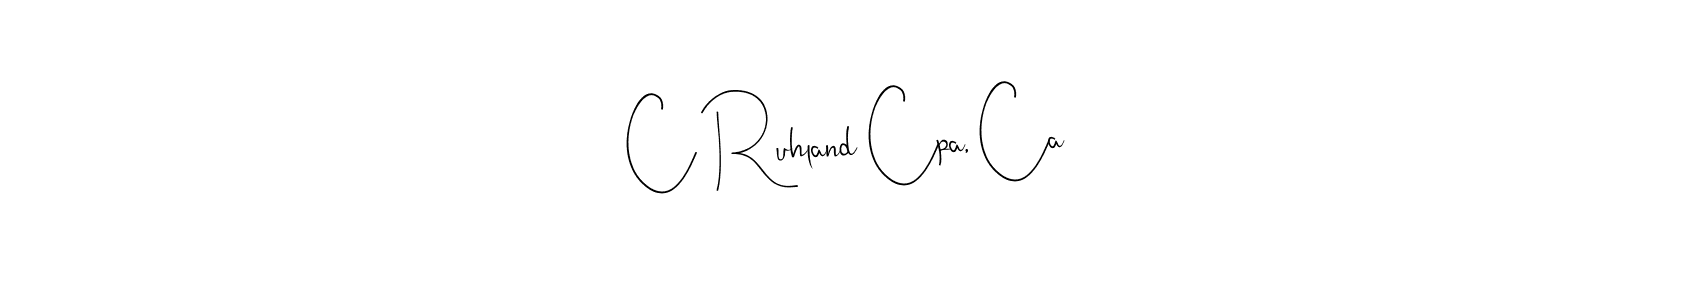 C Ruhland Cpa, Ca